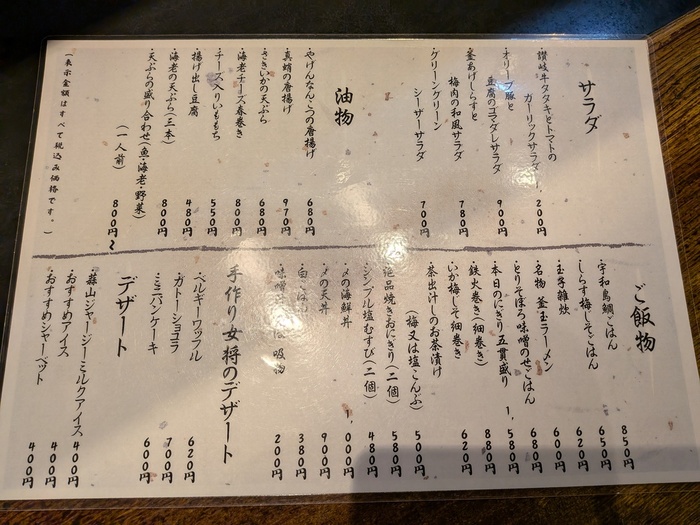 サラダ
・讃岐牛タタキとトマトの
ガーリックサラダ 1,200円
・オリーブ豚と
豆腐のゴマダレサラダ 900円
・釜あげしらすと
梅肉の和風サラダ 780円
・グリーングリーン
シーザーサラダ 700円
油物
・やげんなんこつの唐揚げ 680円
・真蛸の唐揚げ 970円
・さきいかの天ぷら 680円
・海老チーズ春巻き 800円
・チーズ入りいももち 550円
・揚げ出し豆腐 480円
・海老の天ぷら(三本) 800円
・天ぷらの盛り合わせ(魚・海老・野菜)
(一人前) 800円〜
(表示金額はすべて税込み価格です。)
ご飯物
・宇和島鯛ごはん 850円
・しらす梅しそごはん 650円
・玉子雑炊 620円
・名物 釜玉ラーメン 600円
・とりそぼろ味噌のせごはん 680円
・本日のにぎり五貫盛り 1,580円
・鉄火巻き(細巻き) 880円
・いか梅しそ細巻き 620円
・茶出汁しのお茶漬け
(梅又は塩こんぶ) 500円
・絶品焼きおにぎり(二個) 580円
・シンプル塩むすび(二個) 480円
・〆の海鮮丼 1,000円
・〆の天丼 900円
・白ごはん 380円
味噌 吸物 200円
手作り女将のデザート
・ベルギーワッフル 620円
・ガトーショコラ 700円
・ミニパンケーキ 600円
デザート
・蒜山ジャージーミルクアイス 400円
・おすすめアイス 400円
・おすすめシャーベット 400円